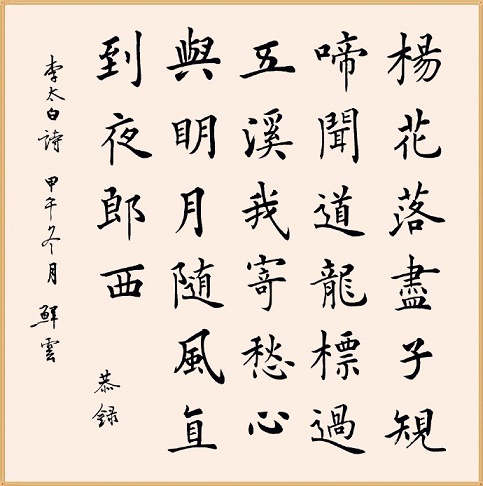 楊花落盡子規
啼聞道龍標過
五溪我寄愁心
與明月随風直
到夜郎西
李太白詩 甲午冬月 鮮雲
恭錄